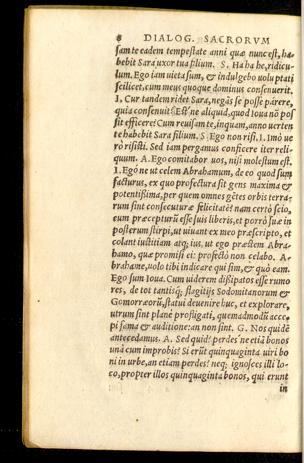 8 DIALOG. SACRORVM
sam te eadem tempestate anni quæ nunc est, ha-
bebit Sara uxor tua filium. S. Ha ha he, ridicu-
lum. Ego iam uieta sum, & indulgebo uoluptati
scilicet, cum meus quoque dominus consenuerit.
I. Cur tandem ridet Sara, negãs se posse parere,
quia consenuit? Est ne aliquid, quod Ioua nõ pos
sit efficere? Cum reuisam te, inquam, anno uerten
te habebit Sara filium. S. Ego non risi. I. Imò ue
rò risisti. Sed iam pergamus conficere iter reli-
quum. A. Ego comitabor uos, nisi molestum est.
I. Egó ne ut celem Abrahamum, de eo quod sum
facturus, ex quo profectura sit gens maxima &
potentißima, per quem omnes gẽtes orbis terra-
rum sint consecuturæ felicitatẽ? nam certò scio,
eum præcepturũ esse suis liberis, et porrò suæ in
posterum stirpi, ut uiuant ex meo præscripto, et
colant iustitiam atq; ius, ut ego præstem Abra-
hamo, quæ promisi ei: profectò non celabo. A-
brahame, uolo tibi indicare qui sim, & quò eam.
Ego sum Ioua. Cum uiderem dißipatos esse rumo
res, de tot tantisq; flagitijs Sodomitanorum &
Gomorræorũ, statui deuenire huc, et explorare,
utrum sint planè profligati, quemadmodũ acce-
pi fama & auditione: an non sint. G. Nos quidẽ
antecedamus. A. Sed quid? perdes ne etiã bonos
unà cum improbis? Si erũt quinquaginta uiri bo
ni in urbe, an etiam perdes? neq; ignosces illi lo-
co, propter illos quinquaginta bonos, qui erunt
in